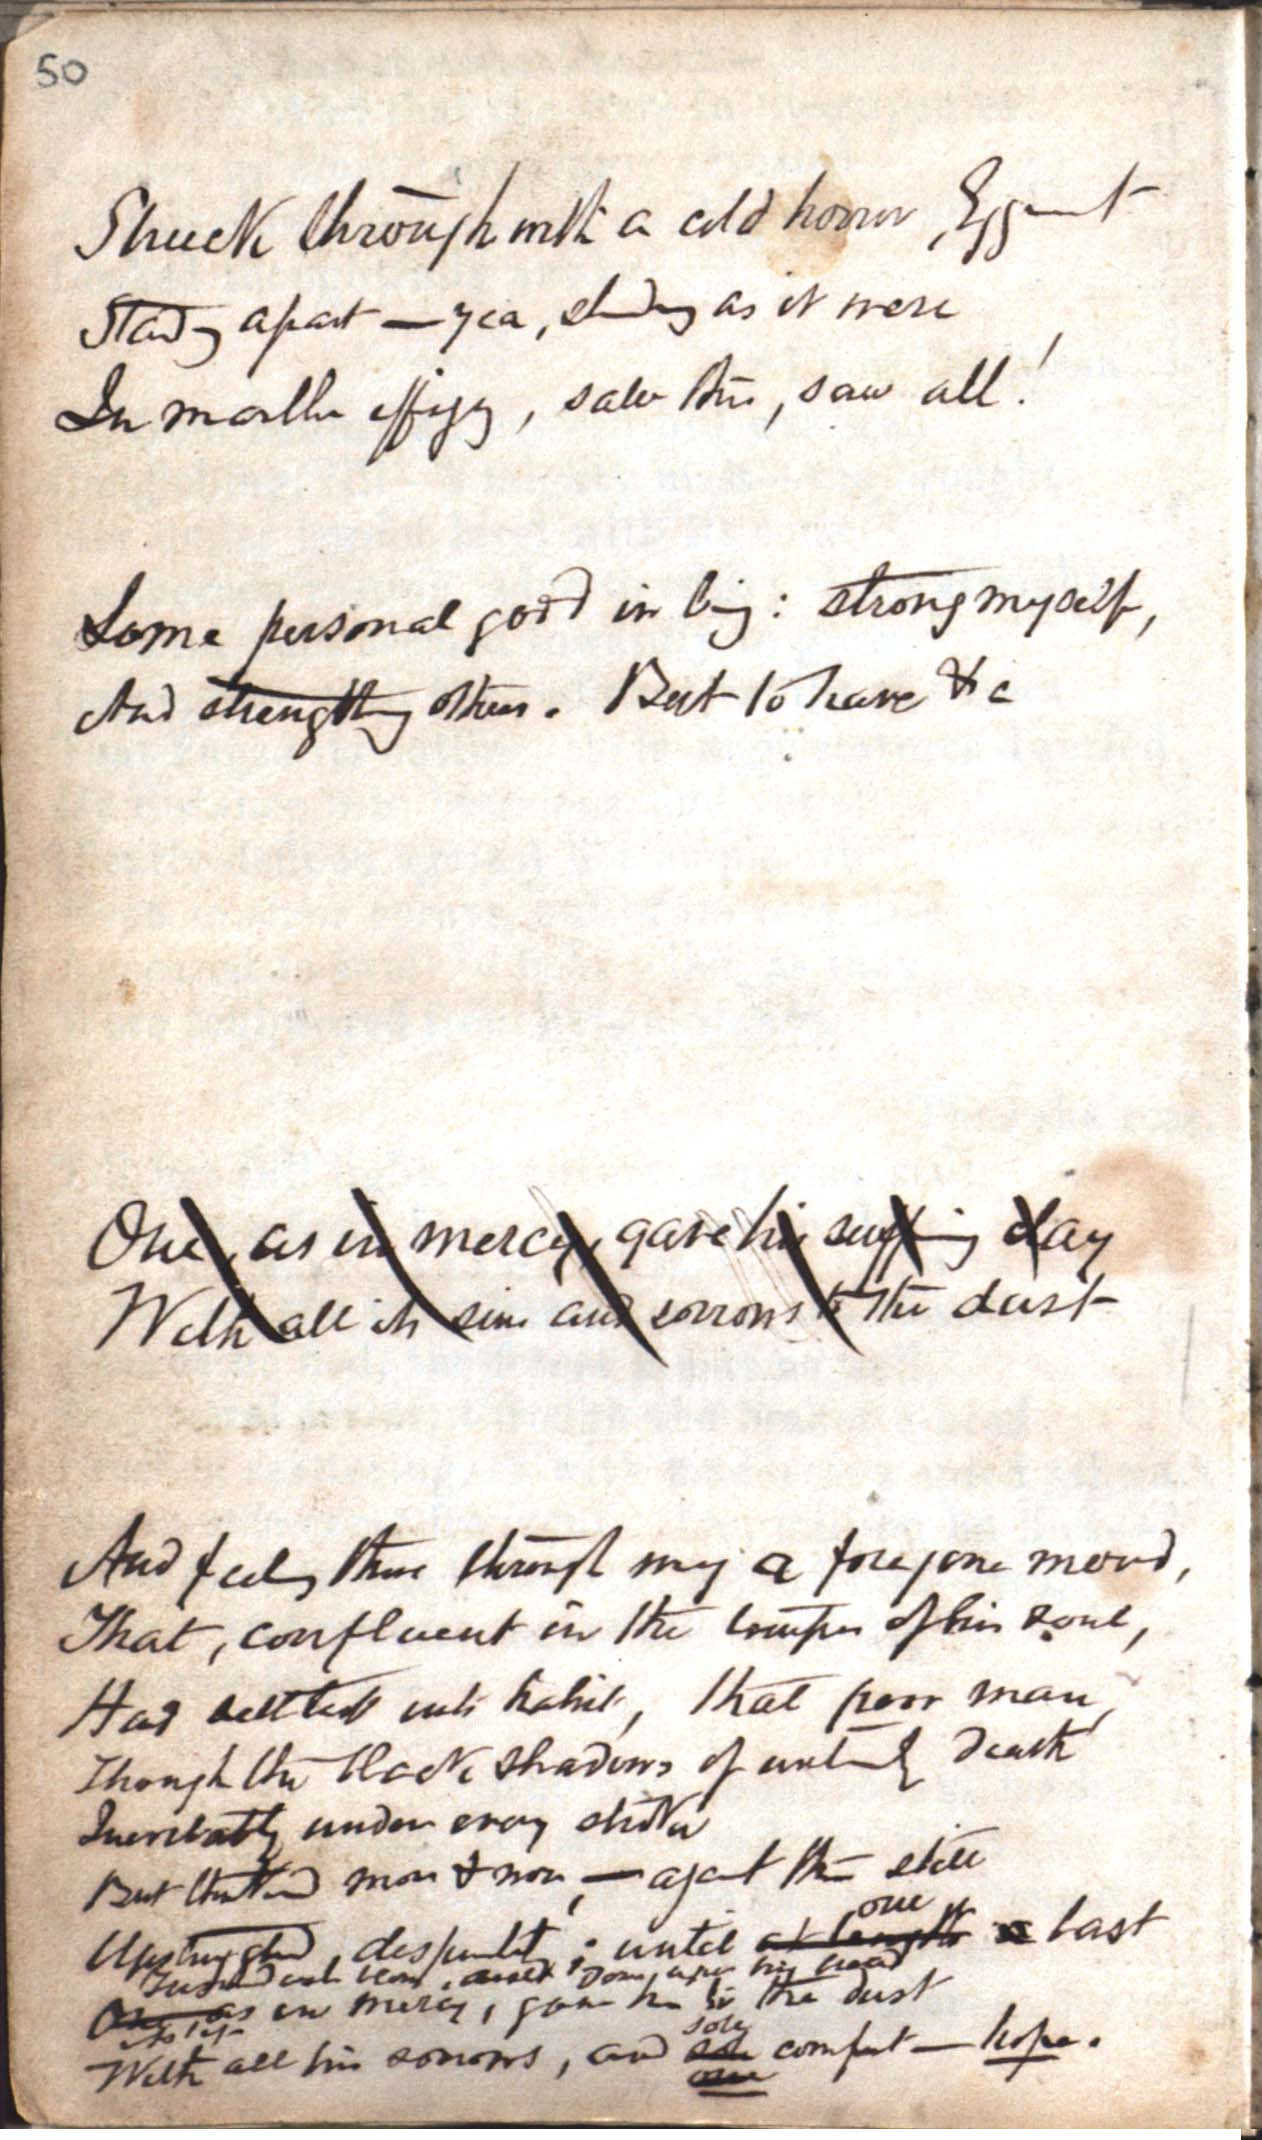 50
Struck through with a cold horror, Egremont
Standing apart — yea, standing as it were
In marble effigy, saw this, saw all!
Some personal good in being: strong myself,
And strengthening others. But to have &c
One, as in mercy, gave his suffering clay
With all its sins and sorrows to the dust
And feeling there through many a foregone mood,
That, confluent in the temper of his soul,
Had settled into habit, that poor man,
Though the black shadows of untimely death
Inevitably under every stroke
But thickened more & more, — against them still
Upstruggled, desperately; until at length one last
upon his head
One as in mercy, gave him to the dust
With all his sorrows, and sole one comfort — hope.